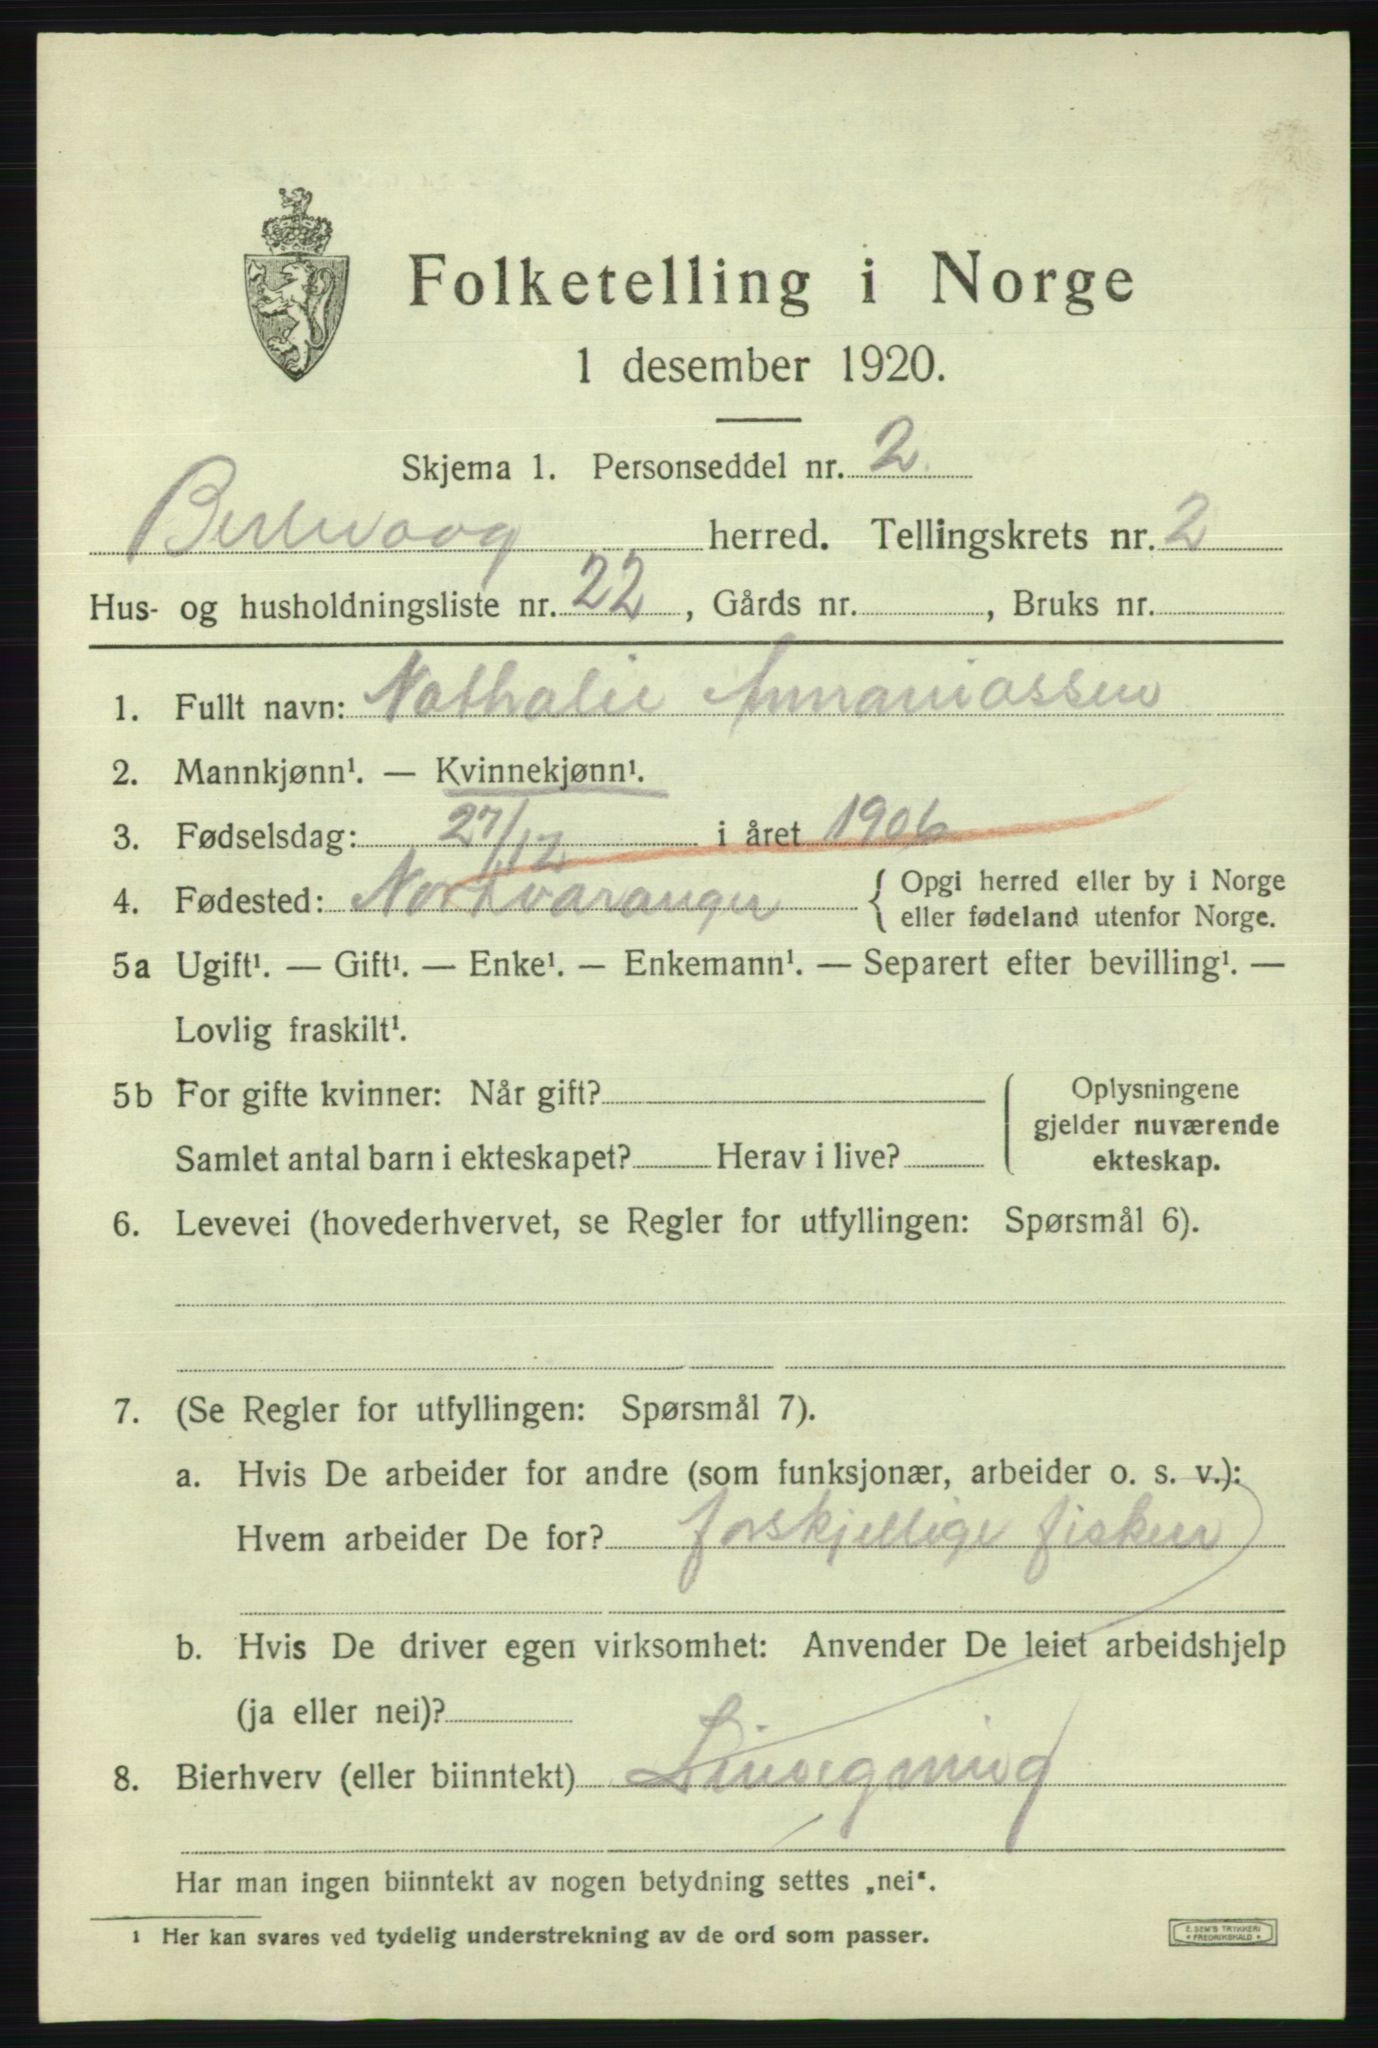 Folketelling i Norge
1 desember 1920.
Skjema 1. Personseddel nr. 2
Berlevaag herred. Tellingskrets nr. 2
Hus- og husholdningsliste nr. 22, Gårds nr. , Bruks nr.
1. Fullt navn: Nathalie Annaniassen
2. Mannkjønn¹. — Kvinnekjønn¹.
3. Fødselsdag: 27/12 i året 1906
4. Fødested: Nordvaranger { Opgi herred eller by i Norge
eller fødeland utenfor Norge.
5a Ugift¹. — Gift¹. — Enke¹. — Enkemann¹. — Separert efter bevilling¹. —
Lovlig fraskilt¹.
5b For gifte kvinner: Når gift?
Samlet antal barn i ekteskapet? Herav i live?
Oplysningene
gjelder nuværende
ekteskap.
6. Levevei (hovederhvervet, se Regler for utfyllingen: Spørsmål 6).
7. (Se Regler for utfyllingen: Spørsmål 7).
a. Hvis De arbeider for andre (som funksjonær, arbeider o. s. v.):
Hvem arbeider De for? forskjellige fiskeri
b. Hvis De driver egen virksomhet: Anvender De leiet arbeidshjelp
(ja eller nei)?
8. Bierhverv (eller biinntekt) Lineegning
Har man ingen biinntekt av nogen betydning settes „nei“.
1 Her kan svares ved tydelig understrekning av de ord som passer.
E. SEM'S TRYKKERI
FREDRIKSHALD